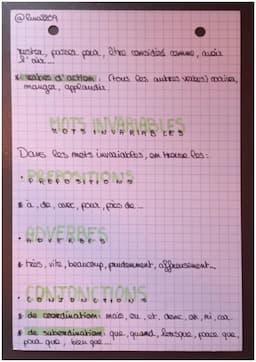 rester, passer pour, être considéré comme, avoir
l'air...
verbes d'action : (tous les autres verbes)
manger, applaudir
MOTS INVARIABLES
MOTS INVARIABLES
Dans les mots invariables, on trouve les :
• PREPOSITIONS
PREPOSITIONS
à, de, avec, pour, près de...
• ADVERBES
ADVERBES
très, vite, beaucoup, prudemment, affreusement...
• CONJONCTIONS
CONJONCTIONS
de coordination: mais, ou, et, donc, or, ni, car
de subordination: que, quand, lorsque, parce que,
pour que, bien que...